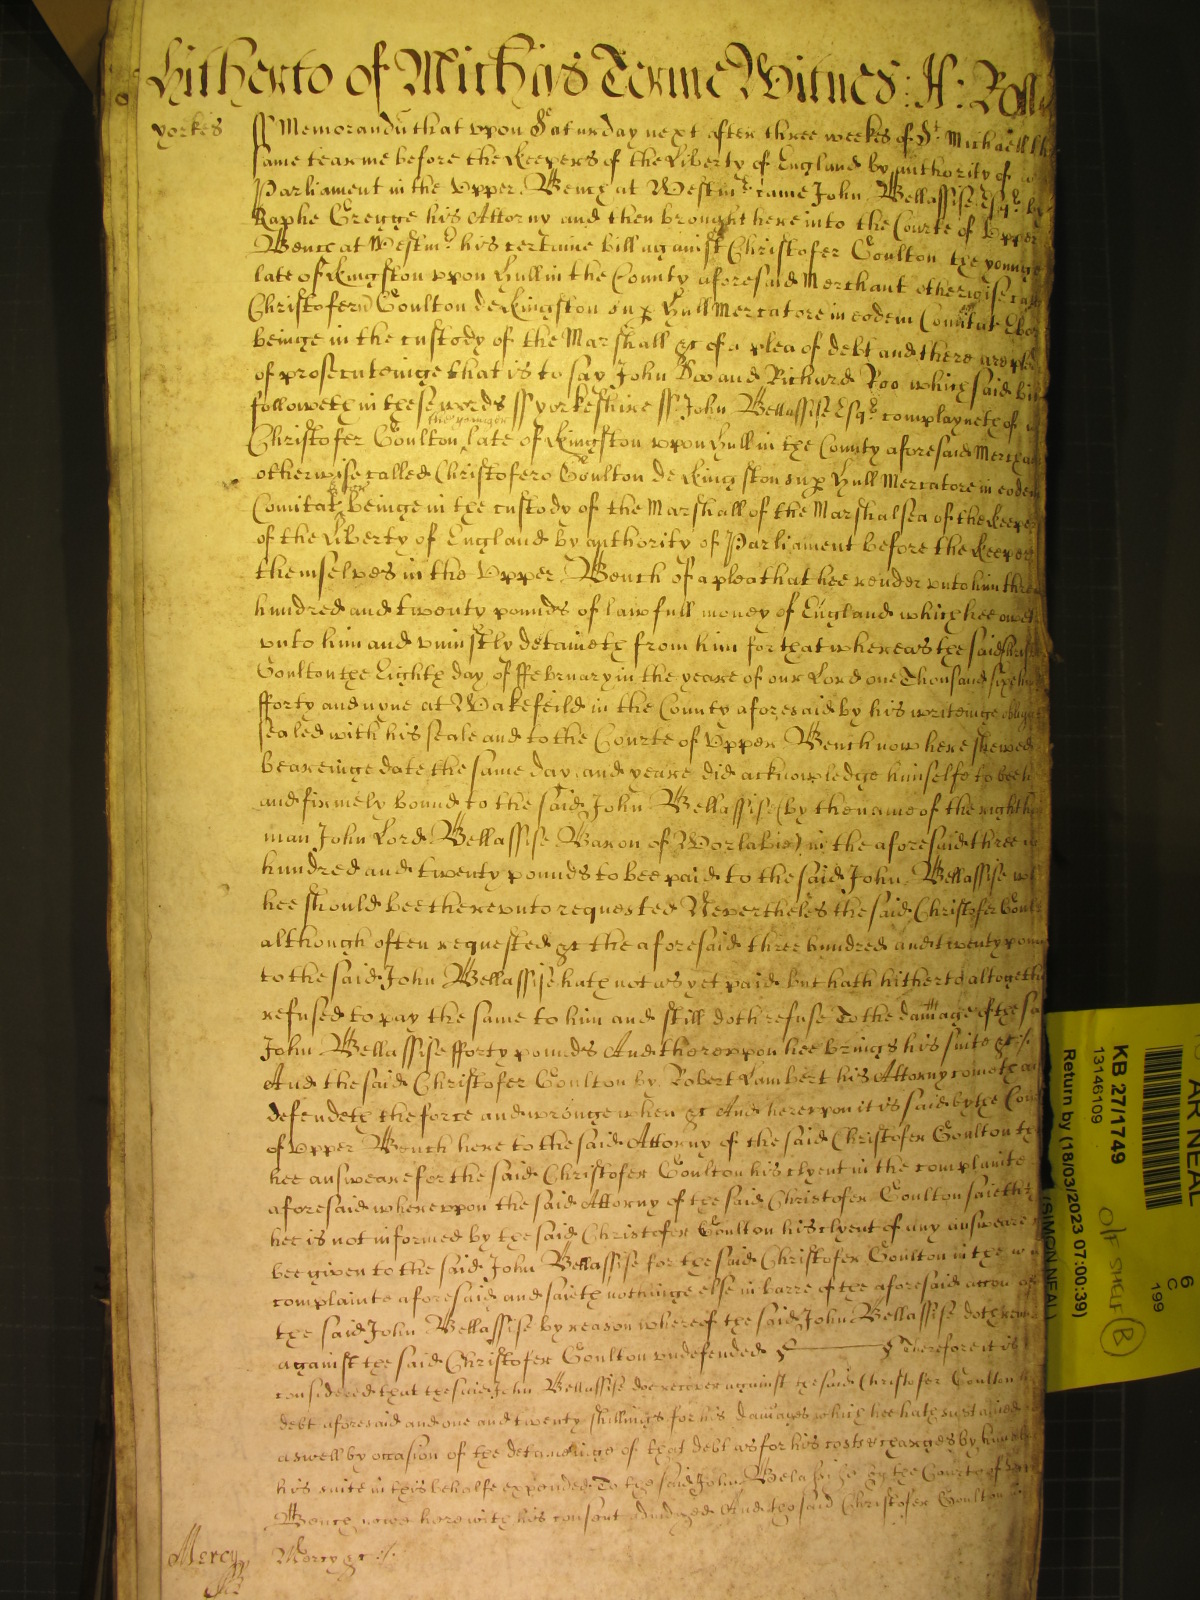 Hitherto of Mich'is Terme Witnes: H: Roll
yorkes ss Memorandu that vpon Saturday next after three weekes of St Michaell the
same tearme before the Keepers of the Liberty of England by authority of
Parliament in the Vpper Bench at Westmr came John Bellassise Esqr by
Raphe Gregge his Attorny and then brought here into the Courte of Vpper
Bench at Westmr his certaine bill against Christofer Goulton the younge
late of Kingston vpon Hull in the County aforesaid Merchant otherwise call
Christoferu Goulton de Kingston sup Hull Mercatore in eodem Comitat Ebor
beinge in the custody of the Marshall &c of a plea of debt and there are pled
of prosecuteinge that is to say John Doo and Richard Roo which said bill
followeth in these words ss yorkeshire ss John Bellassise Esqr complayneth of
the younger
Christofer Goulton late of Kingston vpon Hull in the County aforesaid Mercha
otherwise called Christofero Goulton de Kingston sup Hull Mercatore in eodem
Comitat beinge in the custody of the Marshall of the Marshalsea of the Keeper
of the Liberty of England by authority of Parliament before the Keepers
themselves in the Vpper Bench of a plea that hee render vnto him three
hundred and twenty pounds of lawfull money of England which hee oweth
vnto him and vniustly detaineth from him for that whereas the said Christ
Goulton the Eighth day of ffebruary in the yeare of our Lord one Thousand six hu
fforty and nyne at Wakefeild in the County aforesaid by his writeinge oblig
sealed with his seale and to the Courte of Vpper Bench now here shewed
beareinge date the same day and yeare did acknowledge himselfe to bee h
and firmely bound to the said John Bellassise (by the name of the right ho
man John Lord Bellassise Baron of Worlabie) in the aforesaid three
hundred and twenty pounds to bee paid to the said John Bellassise wh
hee should bee therevnto requested Neverthelesse the said Christofer Goult
although often requested &c the aforesaid three hundred and twenty poun
to the said John Bellassise hath not as yet paid but hath hitherto altogeth
refused to pay the same to him and still doth refuse To the damage of the sa
John Bellassise fforty pounds And therevpon hee brings his suite &c
And the said Christofer Goulton by Robert Lambert his Attorny cometh an
defendeth the force and wronge when &c And herevpon it is said by the Cou
of Vpper Bench here to the said Attorny of the said Christofer Goulton th
hee answeare for the said Christofer Goulton his clyent in the complainte
aforesaid wherevpon the said Attorny of the said Christofer Goulton saieth
hee is not informed by the said Christofer Goulton his clyent of any answeare
bee given to the said John Bellassise for the said Christofer Goulton in the
complainte aforesaid and saieth nothinge else in barre of the aforesaid accon of
the said John Bellassise by reason whereof the said John Bellassise doth rem
against the said Christofer Goulton vndefended Therefore it is
considered that the said John Bellassise doe recover against the said Christofer Goulton
debt aforesaid and one and twenty shillings for his damages which hee hath sustained
aswell by occasion of the detaineinge of that debt as for his costs & charges by him
his suite in this behalfe expended To the said John Belasise by the Courte of Vpper
Bench nowe here with his consent adiudged And the said Christofer Goulton in
Mercy Mercy &c
AR NEAL
6
C
199
KB 27/1749
13146109
O/F SHELF B
(SIMON NEAL)
Return by (18/03/2023 07:00:39)